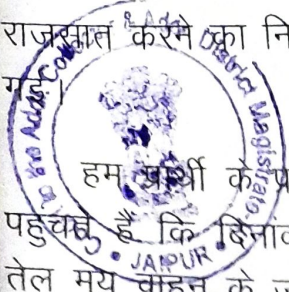 राजसात करने का नि
गई।
हम प्रार्थी के प्र
पहुचते हैं कि दिनांक
तेल मय वाहन के ज
Addl.
District Magistrate
JAIPUR